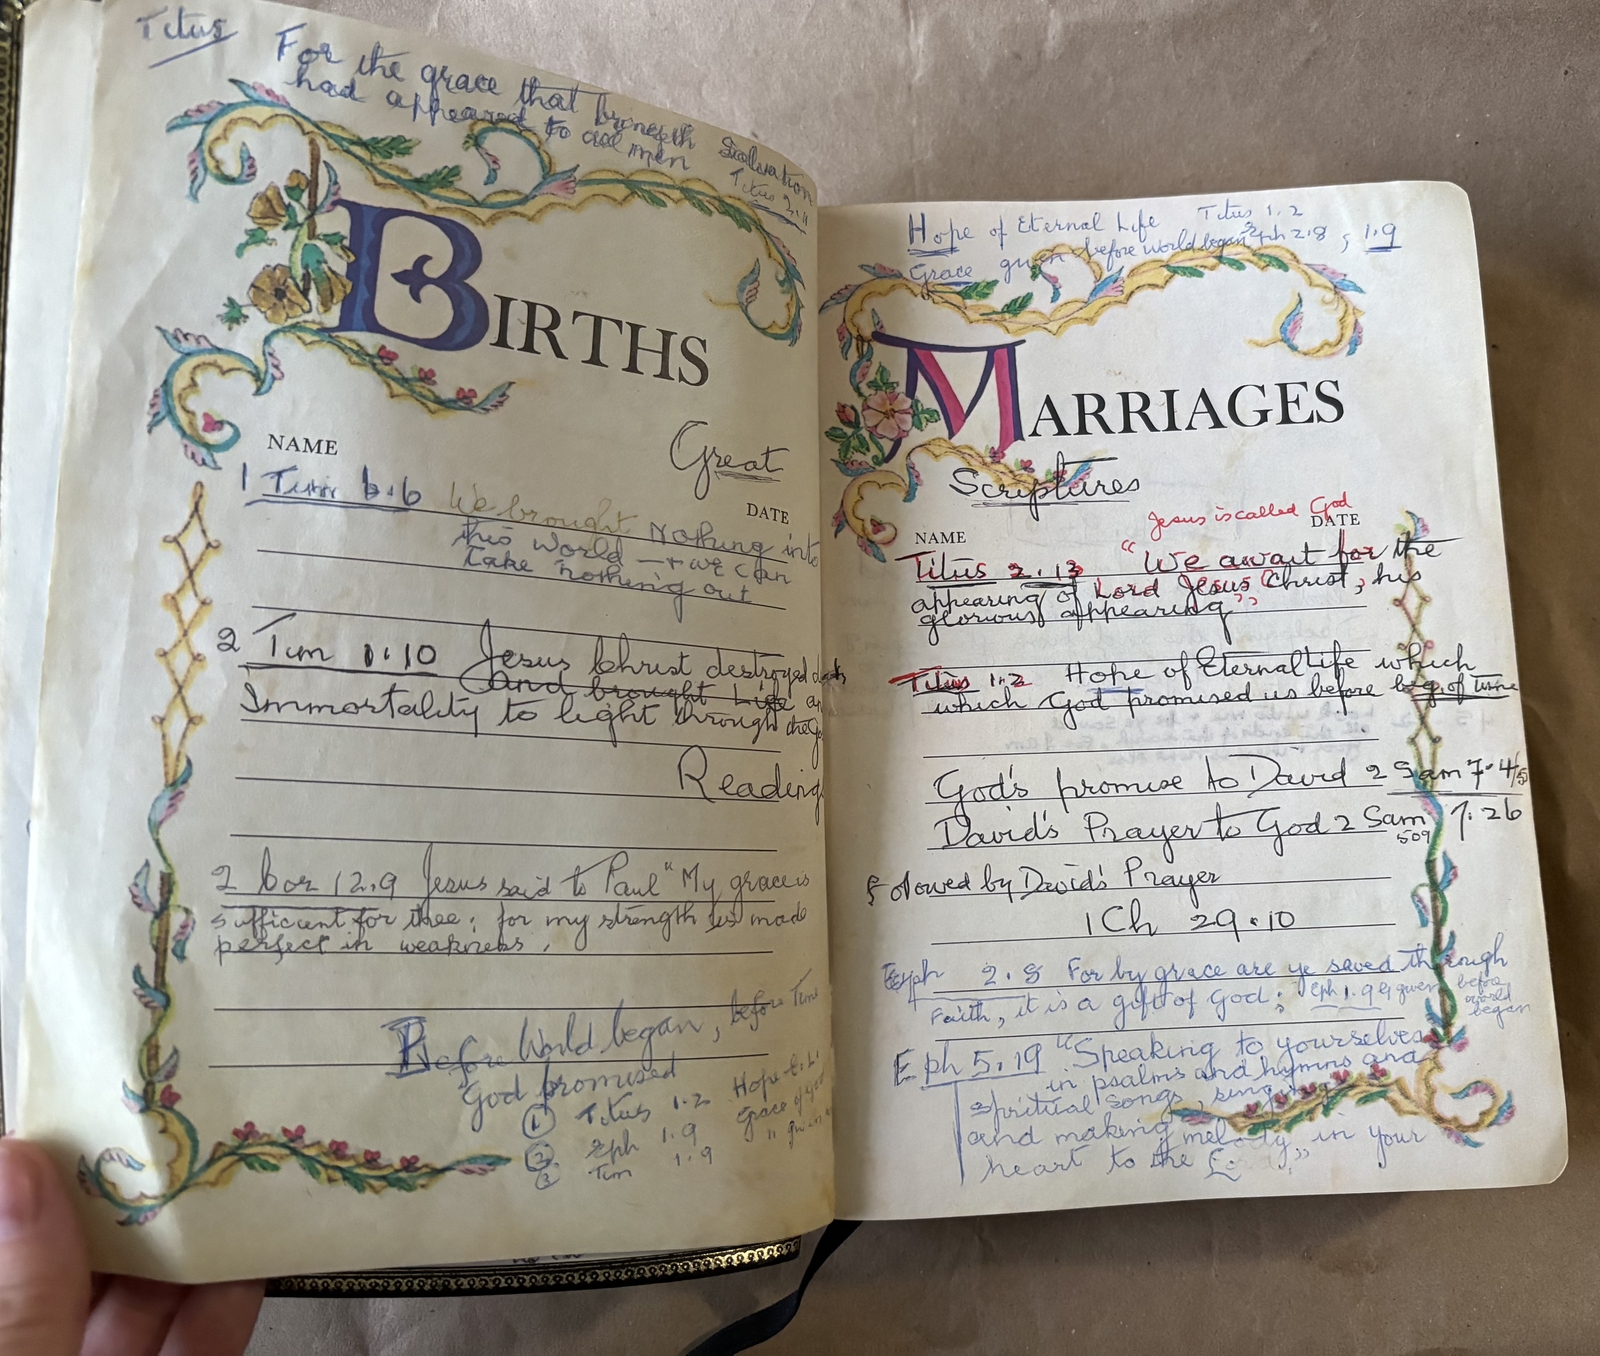 Titus
For the grace that bringeth Salvation
had appeared to all men
Titus 2.11
BIRTHS
Great
NAME
DATE
1 Tim 6.6 We brought Nothing into
this world → + we can
take nothing out
2 Tim 1.10 Jesus Christ destroyed death
and brought Life an
Immortality to light through the
Reading
2 Cor 12.9 Jesus said to Paul "My grace is
sufficient for thee: for my strength is made
perfect in weakness.
Before World began, before Time
God promised
1 Titus 1.2 Hope E.L.
2 Eph 1.9 Grace of God
3 Tim 1.9 " given
Hope of Eternal Life Titus 1.2
Grace given before world began Eph 2.8, 1.9
MARRIAGES
Scriptures
Jesus is called God
NAME
DATE
Titus 2.13 "We await for the
appearing of Lord Jesus Christ, his
glorious appearing"
Titus 1.2 Hope of Eternal Life which
which God promised us before beg. of time
God's promise to David 2 Sam 7.4/5
David's Prayer to God 2 Sam 7.26
509
Folowed by David's Prayer
1 Ch 29.10
Eph 2.8 For by grace are ye saved through
Faith, it is a gift of God; Eph 1.9 given before
world
began
Eph 5.19 "Speaking to yourselves
in psalms and hymns and
spiritual songs, singing
and making melody in your
heart to the Lord."